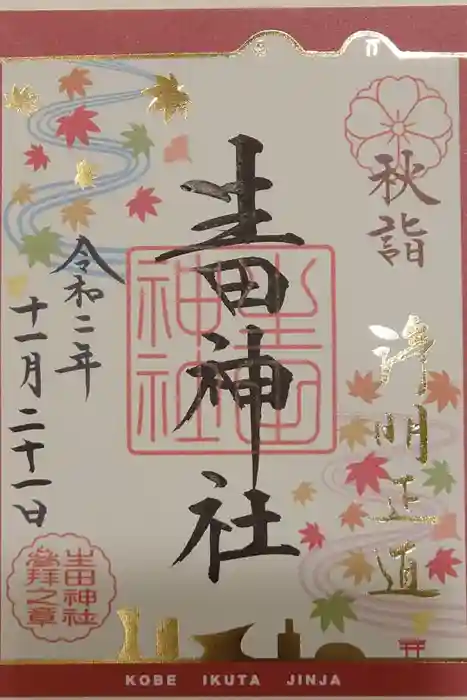 秋詣
浄明正道
生田神社
生田神社
令和二年
十一月二十一日
生田神社
參拝之章
KOBE IKUTA JINJA